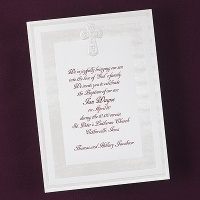 We are joyfully bringing our son
into the love of God's family.
We invite you to celebrate
the Baptism of our son
Ian Wayne
on April 10
during the 10:00 service
St. Peter's Lutheran Church
Iowa
Thomas and Hilary